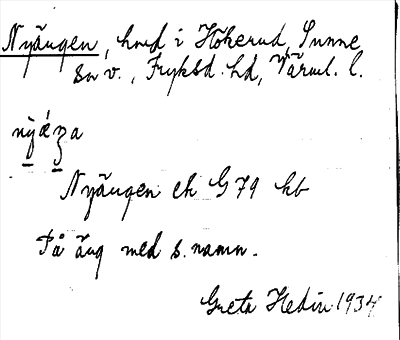 Nyängen, hmd i Högerud, Sunne
sn v., Fryksd. hd, Värml. l.
Nyängen ek G 79 kb
På äng med s. namn.
Greta Hedin 1934